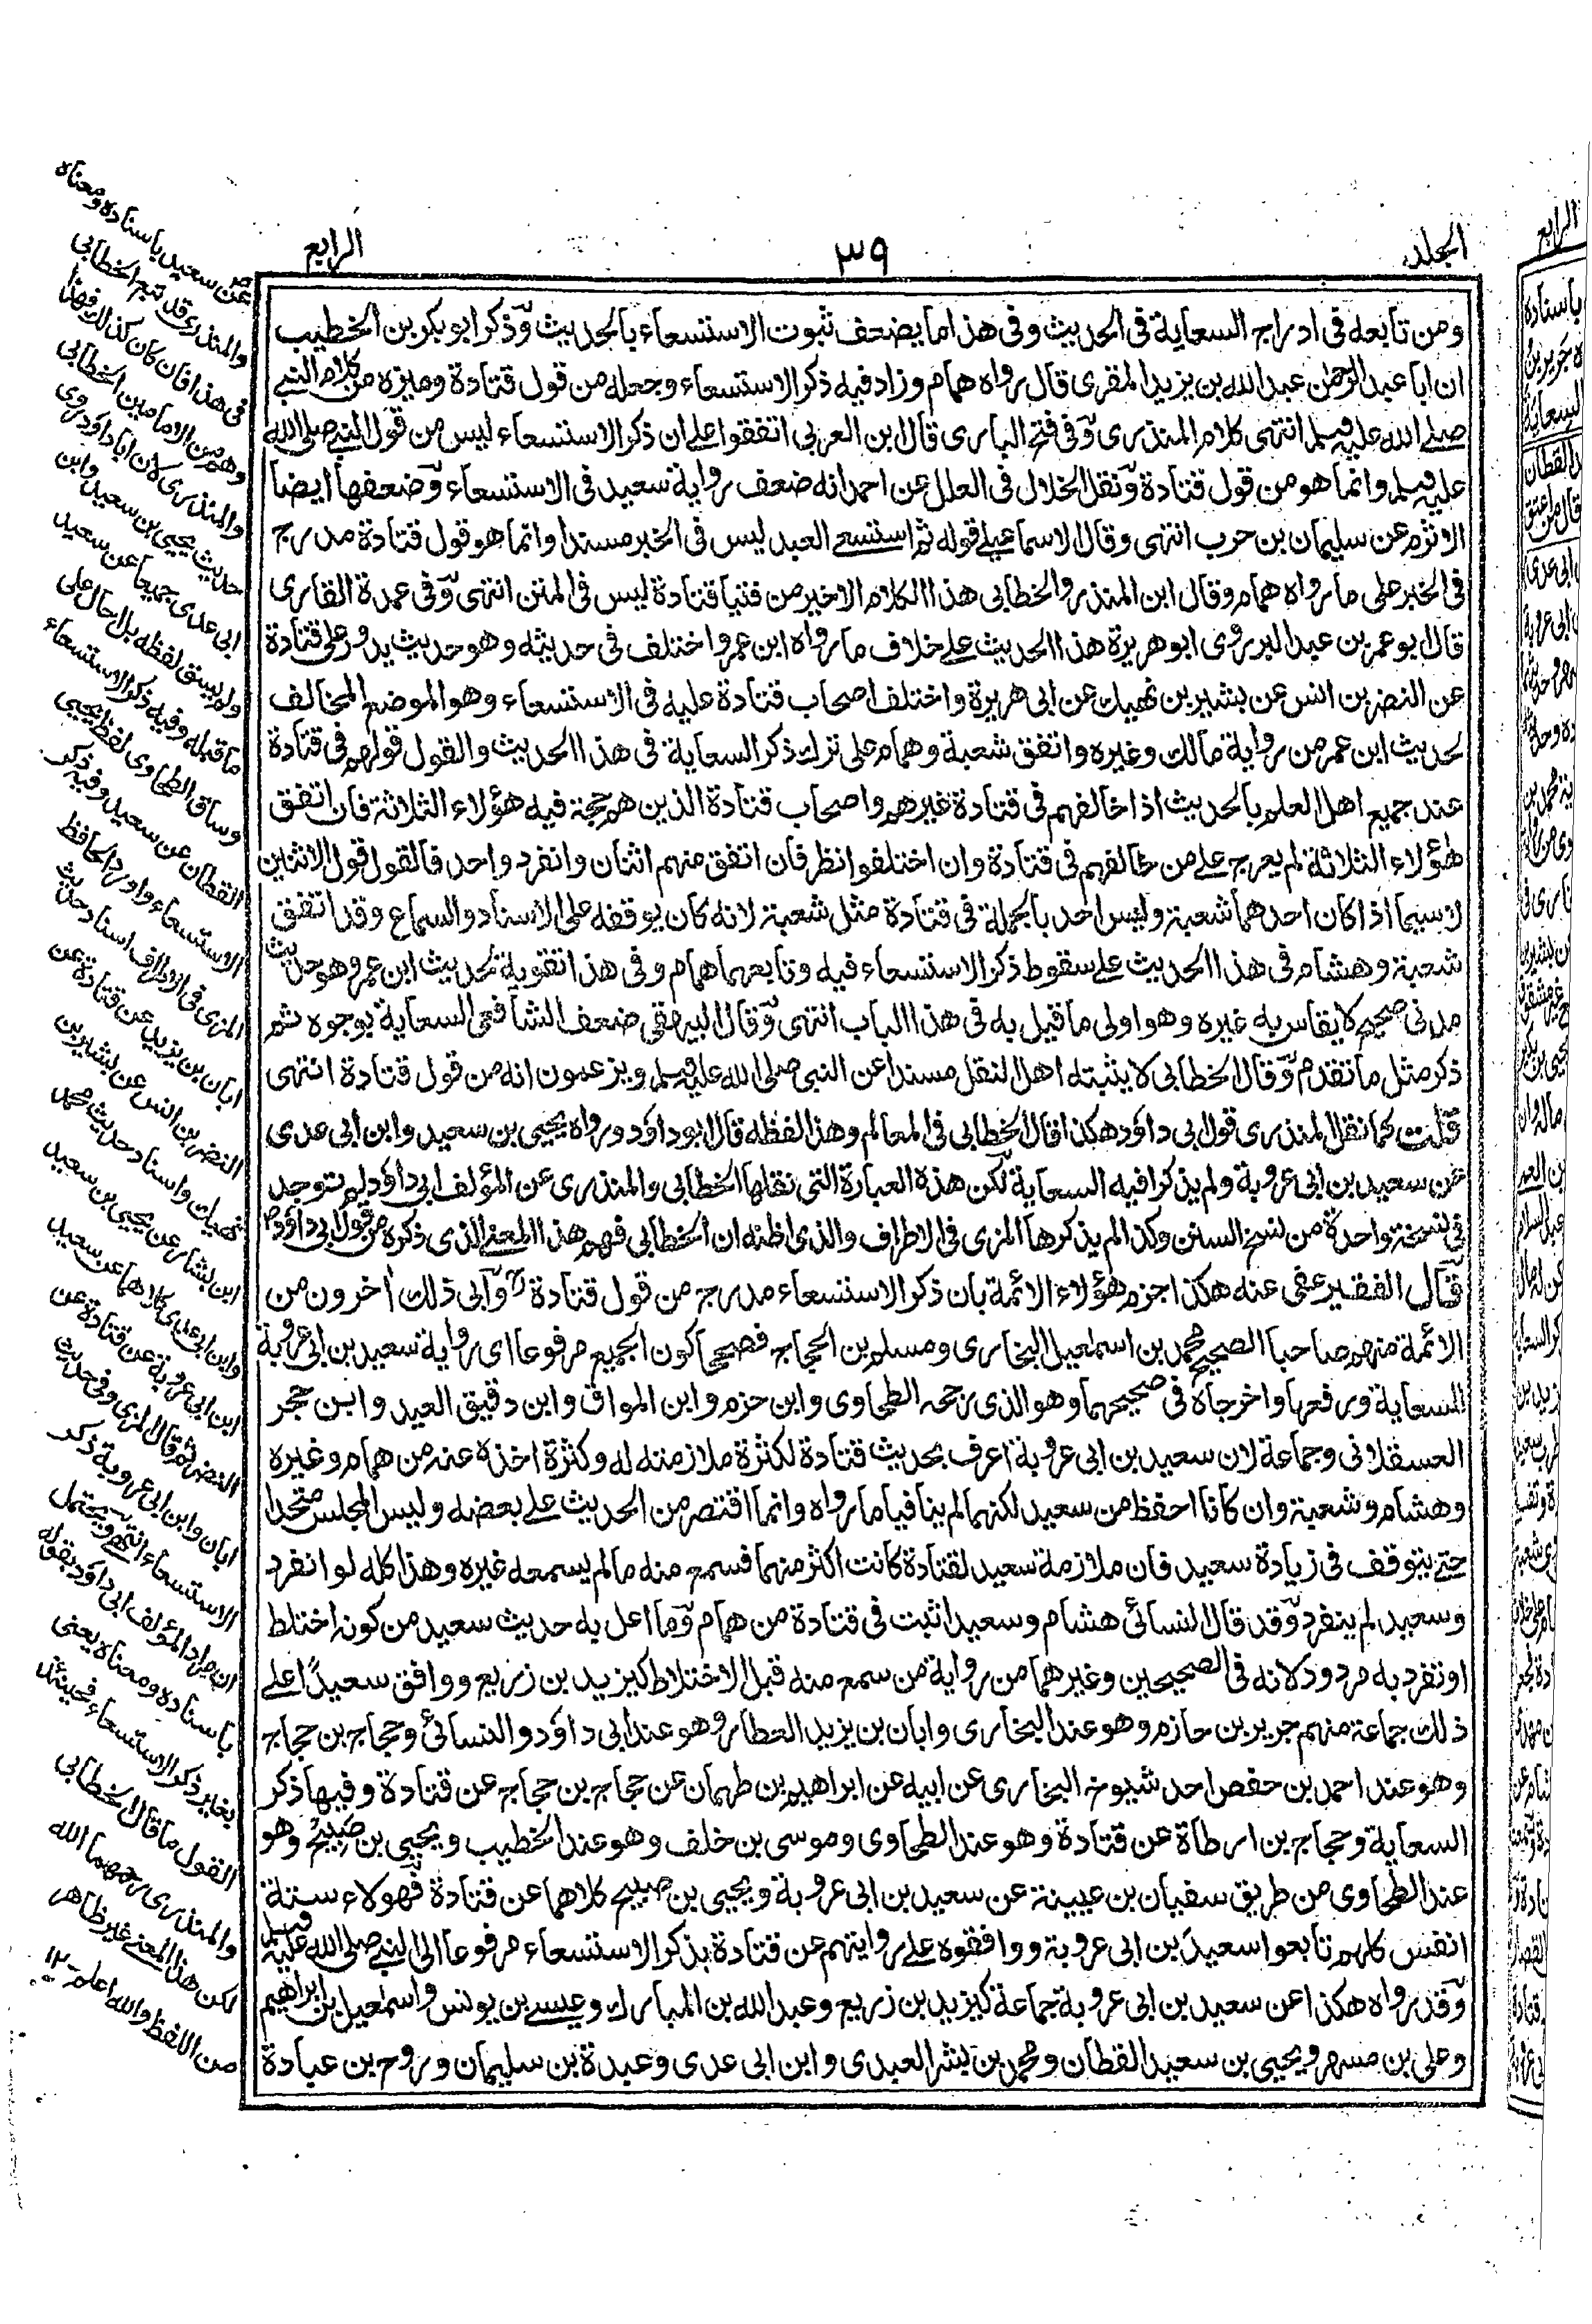 المجلد
٣٩
الرابع
ومن تابعه في ادراج السعاية في الحديث وفي هذا ما يضعف ثبوت الاستسعاء بالحديث وذكر ابو بكر بن الخطيب
ان ابا عبد الرحمن عبد الله بن يزيد المقرى قال رواه همام وزاد فيه ذكر الاستسعاء وجعله من قول قتادة وميزه من كلام النبي
صلى الله عليه وسلم انتهى كلام المنذرى وفي فتح البارى قال ابن العربي اتفقوا على ان ذكر الاستسعاء ليس من قول النبي صلى الله
عليه وسلم وانما هو من قول قتادة ونقل الخلال في العلل عن احمد انه ضعف رواية سعيد في الاستسعاء وضعفها ايضا
الاثرم عن سليمان بن حرب انتهى وقال الاسماعيلي قوله ثم استسعى العبد ليس في الخبر مسندا وانما هو قول قتادة مدرج
في الخبر على ما رواه همام وقال ابن المنذر والخطابي هذا الكلام الاخير من فتيا قتادة ليس في المتن انتهى وفي عمدة القارى
قال ابو عمر بن عبد البر روى ابو هريرة هذا الحديث على خلاف ما رواه ابن عمر واختلف في حديثه وهو حديث يدور على قتادة
عن النضر بن انس عن بشير بن نهيك عن ابى هريرة واختلف اصحاب قتادة عليه في الاستسعاء وهو الموضع المخالف
لحديث ابن عمر من رواية مالك وغيره واتفق شعبة وهمام على ترك ذكر السعاية في هذا الحديث والقول قولهم في قتادة
عند جميع اهل العلم بالحديث اذا خالفهم في قتادة غيرهم واصحاب قتادة الذين هم حجة فيه هؤلاء الثلاثة فان اتفق
هؤلاء الثلاثة لم يعرج على من خالفهم في قتادة وان اختلفوا نظر فان اتفق منهم اثنان وانفرد واحد فالقول قول الاثنين
لاسيما اذا كان احدهما شعبة وليس احد بالجملة في قتادة مثل شعبة لانه كان يوقفه على الاسناد والسماع وقد اتفق
شعبة وهشام في هذا الحديث على سقوط ذكر الاستسعاء فيه وتابعهما همام وفي هذا تقوية لحديث ابن عمر وهو حديث
مدني صحيح لا يقاس به غيره وهو اولى ما قيل به في هذا الباب انتهى وقال البيهقي ضعف الشافعي السعاية بوجوه ثم
ذكر مثل ما تقدم وقال الخطابي لا يثبته اهل النقل مسندا عن النبي صلى الله عليه وسلم ويزعمون انه من قول قتادة انتهى
قلت كما نقل المنذرى قول ابي داؤد هكذا قال الخطابي في المعالم وهذا لفظه قال ابو داؤد ورواه يحيى بن سعيد وابن ابى عدى
عن سعيد بن ابى عروبة ولم يذكرا فيه السعاية لكن هذه العبارة التي نقلها الخطابي والمنذرى عن المؤلف ابي داؤد لم توجد
في نسخة واحدة من نسخ السنن وكذا لم يذكرها المزى في الاطراف والذى اظنه ان الخطابي فهم هذا المعنى الذى ذكره من قول ابى داؤد
قال الفقير عفى عنه هكذا جزم هؤلاء الائمة بان ذكر الاستسعاء مدرج من قول قتادة وابى ذلك اخرون من
الائمة منهم صاحبا الصحيح محمد بن اسمعيل البخارى ومسلم بن الحجاج فصححا كون الجميع مرفوعا اى رواية سعيد بن ابى عروبة
السعاية ورفعها واخرجاه في صحيحهما وهو الذى رجحه الطحاوى وابن حزم وابن المواق وابن دقيق العيد وابن حجر
العسقلاني وجماعة لان سعيد بن ابى عروبة اعرف بحديث قتادة لكثرة ملازمته له وكثرة اخذه عنه من همام وغيره
وهشام وشعبة وان كانا احفظ من سعيد لكنهما لم ينافيا ما رواه وانما اقتصر من الحديث على بعضه وليس المجلس متحدا
حتى يتوقف في زيادة سعيد فان ملازمة سعيد لقتادة كانت اكثر منهما فسمع منه ما لم يسمعه غيره وهذا كله لو انفرد
وسعيد لم ينفرد وقد قال النسائى هشام وسعيد اثبت في قتادة من همام وما اعل به حديث سعيد من كونه اختلط
او تفرد به مردود لانه في الصحيحين وغيرهما من رواية من سمع منه قبل الاختلاط كيزيد بن زريع ووافق سعيدا على
ذلك جماعة منهم جرير بن حازم وهو عند البخارى وابان بن يزيد العطار وهو عند ابى داؤد والنسائى وحجاج بن حجاج
وهو عند احمد بن حفص احد شيوخ البخارى عن ابيه عن ابراهيم بن طهمان عن حجاج بن حجاج عن قتادة وفيها ذكر
السعاية وحجاج بن ارطاة عن قتادة وهو عند الطحاوى وموسى بن خلف وهو عند الخطيب ويحيى بن صبيح وهو
عند الطحاوى من طريق سفيان بن عيينة عن سعيد بن ابى عروبة ويحيى بن صبيح كلاهما عن قتادة فهولاء ستة
انفس كلهم تابعوا سعيد بن ابى عروبة ووافقوه على روايتهم عن قتادة بذكر الاستسعاء مرفوعا الى النبي صلى الله عليه وسلم
وقد رواه هكذا عن سعيد بن ابى عروبة جماعة كيزيد بن زريع وعبد الله بن المبارك وعيسى بن يونس واسمعيل بن ابراهيم
وعلى بن مسهر ويحيى بن سعيد القطان ومحمد بن بشر العبدى وابن ابى عدى وعبدة بن سليمان وروح بن عبادة
عن سعيد باسناده ومعناه
والمنذرى قد تبع الخطابي
في هذا فان كان كذلك فهذا
وهم من الامامين الخطابي
والمنذرى لان ابا داؤد روى
حديث يحيى بن سعيد وابن
ابى عدى جميعا عن سعيد
ولم يسق لفظه بل احال على
ما قبله وفيه ذكر الاستسعاء
وساق الطحاوى لفظ يحيى
القطان عن سعيد وفيه ذكر
الاستسعاء واورد الحافظ
المزى في الاطراف اسناد حديث
ابان بن يزيد عن قتادة عن
النضر بن انس عن بشير بن
نهيك واسناد حديث محمد
ابن بشار عن يحيى بن سعيد
وابن ابى عدى كلاهما عن سعيد
ابن ابى عروبة عن قتادة عن
النضر ثم قال المزى وفي حديث
ابان وابن ابى عروبة ذكر
الاستسعاء انتهى ويحتمل
ان مراد المؤلف ابى داؤد بقوله
باسناده ومعناه يعنى
بغير ذكر الاستسعاء فحينئذ
القول ما قال الخطابي
والمنذرى رحمهما الله
لكن هذا المعنى غير ظاهر
من اللفظ والله اعلم ١٢
الرابع
باسناده